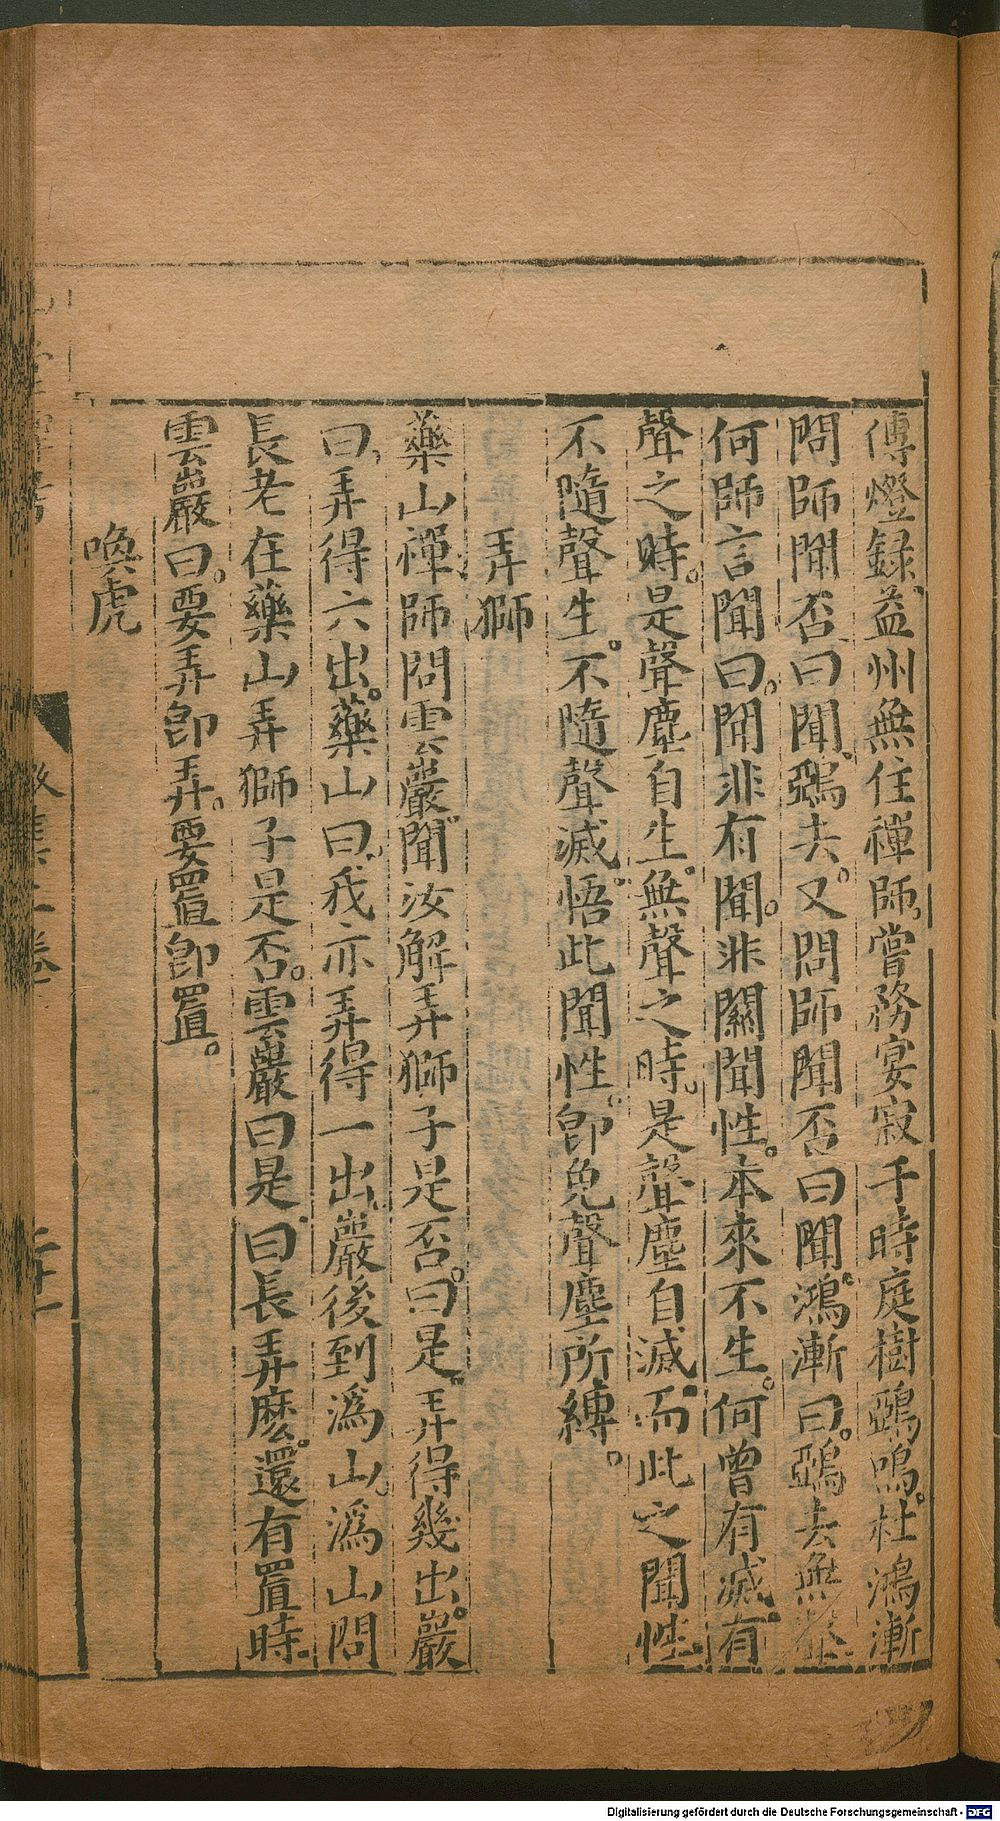 傳燈録益州無住禪師。嘗務宴寂于時庭樹鵶鳴。杜鴻漸
問師聞否曰聞。鵶去。又問師聞否曰聞。鴻漸曰。鵶去無聲
何師言聞曰。聞非有聞。非關聞性。本來不生。何曾有滅。有
聲之時。是聲塵自生。無聲之時。是聲塵自滅。而此之聞性。
不隨聲生。不隨聲滅。悟此聞性。卽免聲塵所縛。
弄獅
藥山禪師問雲巖聞汝解弄獅子是否。曰是。弄得幾出。巖
曰。弄得六出。藥山曰。我亦弄得一出。巖後到潙山。潙山問
長老在藥山弄獅子是否。雲巖曰是。曰長弄麽。還有置時。
雲巖曰。要弄卽弄。要置卽置。
喚虎
二卷
二十一
Digitalisierung gefördert durch die Deutsche Forschungsgemeinschaft - DFG